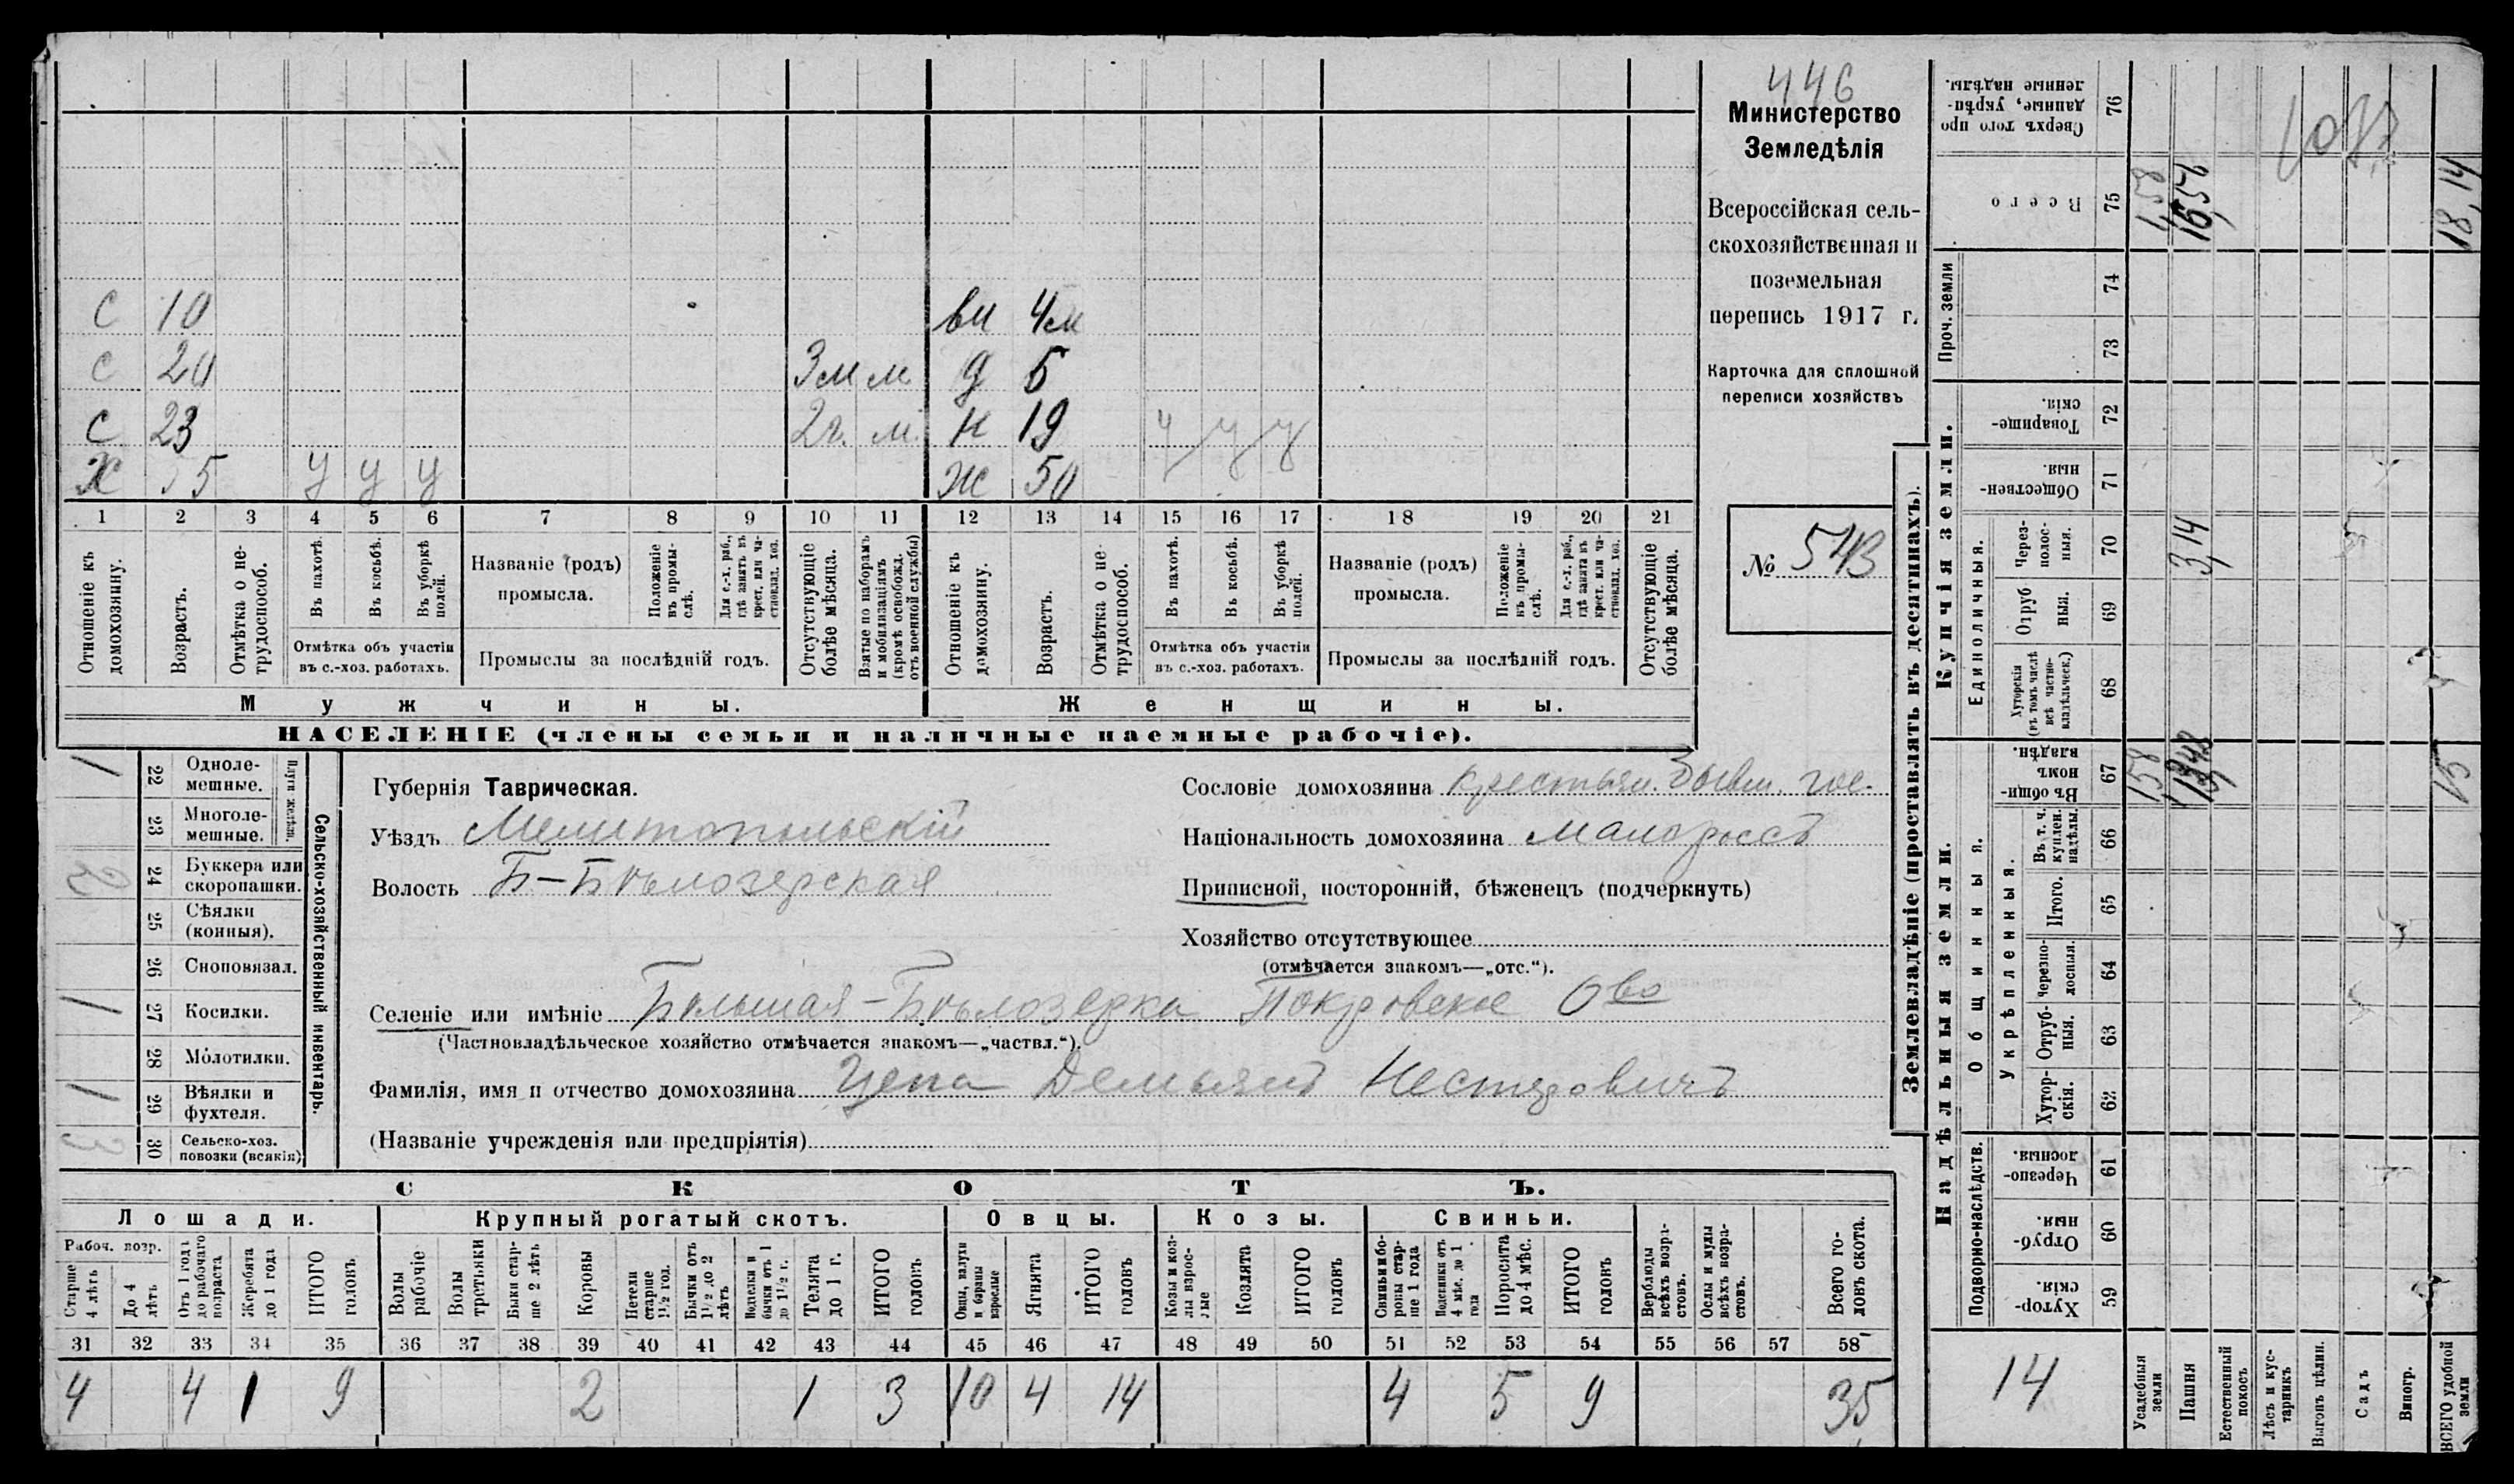 446
Министерство
Земледѣлія
Всероссійская сель-
скохозяйственная и
поземельная
перепись 1917 г.
Карточка для сплошной
переписи хозяйствъ
№ 543
С 10 вн 4м
С 20 3м м. д 5
С 23 2г. м. н 19 у у у
Х 55 у у у ж 50
1 2 3 4 5 6 7 8 9 10 11 12 13 14 15 16 17 18 19 20 21
Отношеніе къ домохозяину.
Возрастъ.
Отмѣтка о не-трудоспособ.
Въ пахотѣ.
Въ косьбѣ.
Въ уборкѣ полей.
Отмѣтка объ участіи
въ с.-хоз. работахъ.
Названіе (родъ)
промысла.
Положеніе въ промы-слѣ.
Для с.-х. раб., гдѣ занятъ въ крест. или ча-стновлад. хоз.
Промыслы за послѣдній годъ.
Отсутствующіе болѣе мѣсяца.
Взятые по наборамъ и мобилизаціямъ (кромѣ освобожд. отъ военной службы)
Отношеніе къ домохозяину.
Возрастъ.
Отмѣтка о не-трудоспособ.
Въ пахотѣ.
Въ косьбѣ.
Въ уборкѣ полей.
Отмѣтка объ участіи
въ с.-хоз. работахъ.
Названіе (родъ)
промысла.
Положеніе въ промы-слѣ.
Для с.-х. раб., гдѣ занята въ крест. или ча-стновлад. хоз.
Промыслы за послѣдній годъ.
Отсутствующіе болѣе мѣсяца.
Мужчины. Женщины.
НАСЕЛЕНІЕ (члены семьи и наличные наемные рабочіе).
Сельско-хозяйственный инвентарь.
Плуги желѣзн.
1 22 Одноле-мешные.
23 Многоле-мешные.
24 Буккера или скоропашки.
25 Сѣялки (конныя).
26 Сноповязал.
1 27 Косилки.
28 Молотилки.
1 29 Вѣялки и фухтеля.
3 30 Сельско-хоз. повозки (всякія)
Губернія Таврическая.
Уѣздъ Мелитопольскій
Волость Б-Бѣлозерская
Сословіе домохозяина крестьян. бывш. гос.
Національность домохозяина малороссъ
Приписной, посторонній, бѣженецъ (подчеркнуть)
Хозяйство отсутствующее
(отмѣчается знакомъ—„отс.“).
Селеніе или имѣніе Большая-Бѣлозерка Покровское Ово
(Частновладѣльческое хозяйство отмѣчается знакомъ—„частвл.“).
Фамилія, имя и отчество домохозяина Цепа Демьянъ Нестеровичъ
(Названіе учрежденія или предпріятія)
СКОТЪ.
Лошади. Крупный рогатый скотъ. Овцы. Козы. Свиньи.
Рабоч. возр.
Старше 4 лѣтъ
До 4 лѣтъ
Отъ 1 года до рабочаго возраста
Жеребята до 1 года
ИТОГО головъ
Волы рабочіе
Волы третьяки
Быки стар-ше 2 лѣтъ
Коровы
Нетели старше 1½ год.
Бычки отъ 1½ до 2 лѣтъ
Подтелки и бычки отъ 1 до 1½ г.
Телята до 1 г.
ИТОГО головъ
Овцы, валухи и бараны взрослые
Ягнята
ИТОГО головъ
Козы и коз-лы взрос-лые
Козлята
ИТОГО головъ
Свиньи и бо-ровы стар-ше 1 года
Подсвинки отъ 4 мѣс. до 1 года
Поросята до 4 мѣс.
ИТОГО головъ
Верблюды всѣхъ возра-стовъ.
Ослы и мулы всѣхъ возра-стовъ.
Всего го-ловъ скота.
31 32 33 34 35 36 37 38 39 40 41 42 43 44 45 46 47 48 49 50 51 52 53 54 55 56 57 58
4 4 1 9 2 1 3 10 4 14 4 5 9 35
Землевладѣніе (проставлять въ десятинахъ).
Надѣльныя земли. Купчія земли. Проч. земли
Подворно-наслѣдств. Общинныя. Единоличныя.
Укрѣпленныя.
59 Хутор-скія.
60 Отруб-ныя.
61 Черезпо-лосныя.
62 Хутор-скія.
63 Отруб-ныя.
64 Черезпо-лосныя.
65 Итого.
66 Въ т. ч. куплен. надѣлы.
67 Въ общи-номъ владѣн.
68 Хуторскія (въ томъ числѣ всѣ частно-владѣльческ.)
69 Отруб ныя.
70 Через-полос-ныя.
71 Обществен-ныя.
72 Товарище-скія.
73
74
75 Всего
76 Сверхъ того про данные, укрѣп-ленные надѣлы.
14
Усадебныя земли 158 158
Пашня 3,14 16,56
Естественный покосъ
Лѣсъ и кус-тарникъ
Выгонъ цѣлин.
Садъ
Виногр.
ВСЕГО удобной земли 15 18,14